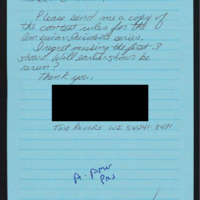 Please send me a copy of
the contest rules for the
American Presidents series.
I regret missing the first 3
shows. Will earlier shows be
rerun?
Thank you,
Two Rivers, WI 54241-3431